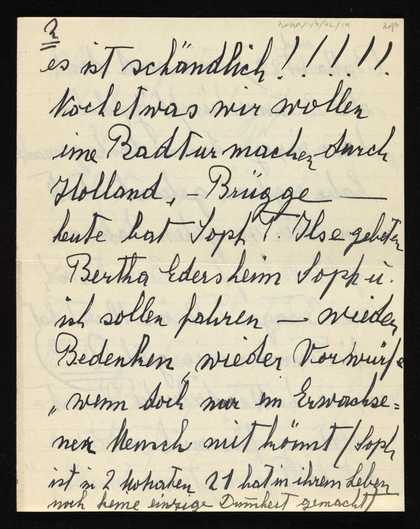 2
es ist schändlich!!!!!!
Noch etwas wir wollen
eine Radtur machen durch
Holland, – Brügge —
heute hat Soph T. Ilse gebeten
Bertha Edersheim Soph u.
ich sollen fahren — wieder
Bedenken, wieder Vorwürfe
„wenn doch nur ein Erwachse=
nen Mensch mitkönnt (Soph
ist in 2 Monaten 21 hat in ihrem Leben
noch keine einzige Dummheit gemacht)